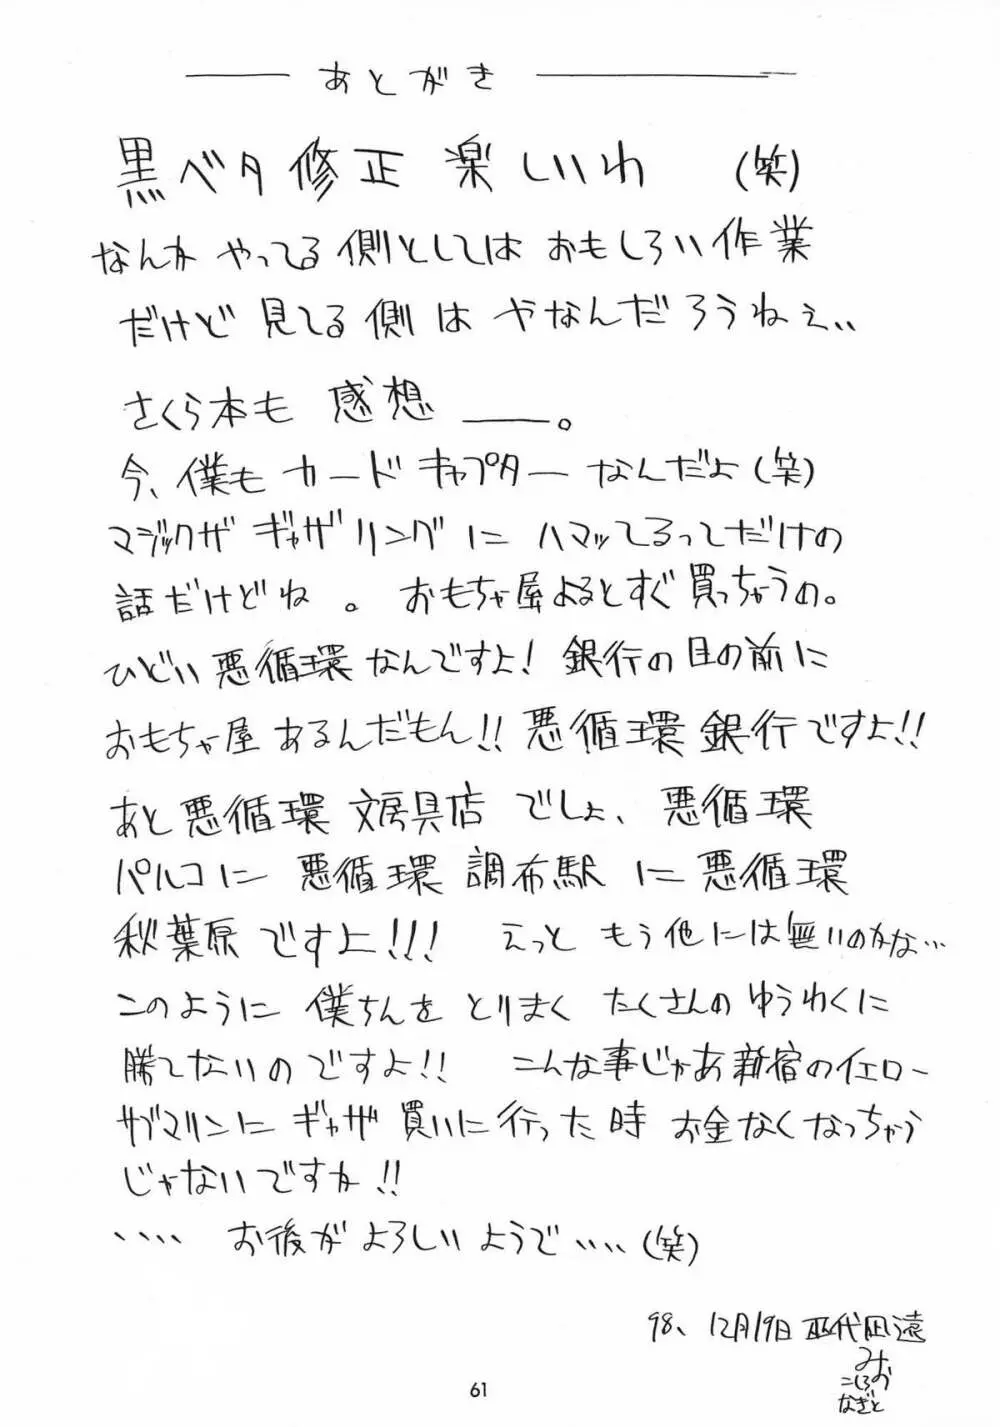 あとがき
黒ベタ修正 楽しいわ (笑)
なんか やってる側としては おもしろい作業
だけど 見てる側は やなんだろうねぇ、、
さくら本も 感想 ――。
今、僕も カードキャプター なんだよ(笑)
マジックザ ギャザリングに ハマッてるってだけの
話だけどね 。 おもちゃ屋よるとすぐ買っちゃうの。
ひどい悪循環なんですよ! 銀行の目の前に
おもちゃ屋 あるんだもん!! 悪循環銀行ですよ!!
あと悪循環 文房具店 でしょ、 悪循環
パルコに 悪循環 調布駅 に 悪循環
秋葉原ですよ!!! えっと もう他には無いのかな…
このように 僕ちんを とりまく たくさんの ゆうわくに
勝てないのですよ!! こんな事じゃあ新宿のイエロー
サブマリンに ギャザ 買いに行った時 お金なくなっちゃう
じゃないですか!!
、、、、 お後がよろしいようで、、、、(笑)
98、12月19日 巫代凪遠
みお
こしろ
なぎと
61